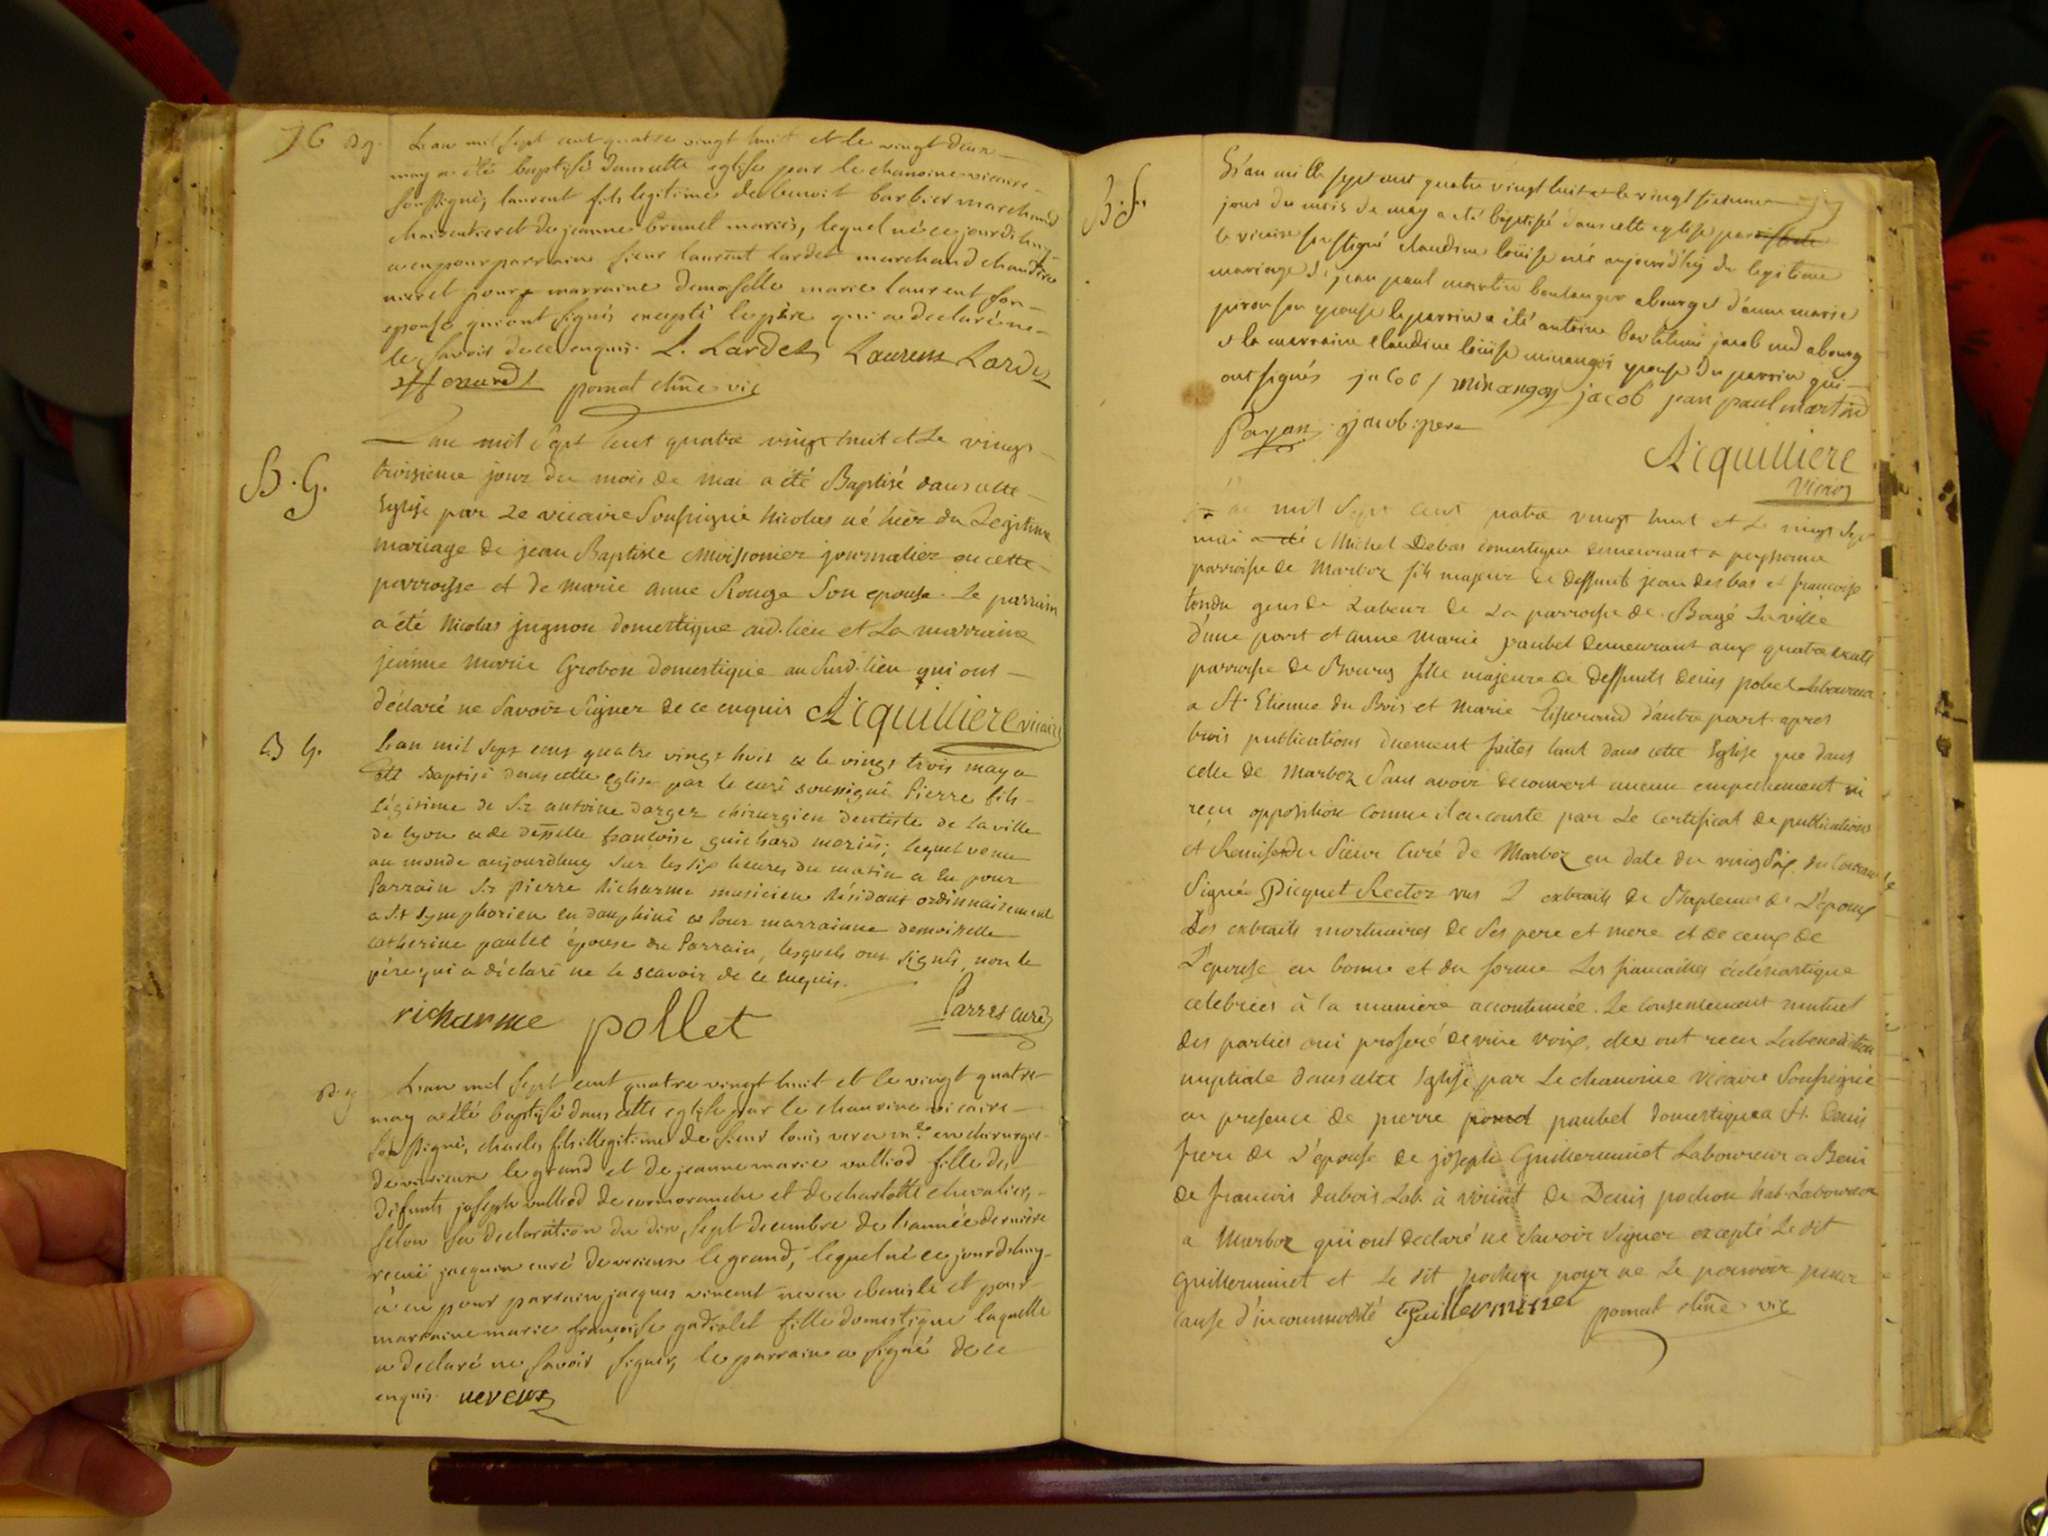 76
B g. L'an mil sept cent quatre vingt huit et le vingt deux
may a été baptisé dans cette eglise par le chanoine vicaire
soussigné, laurent fils legitime de benoit barbier marchand
et de jeanne brunet mariés, lequel né ce jourdhuy
a eu pour parrain sieur laurent lardet marchand
et pour marraine demoiselle marie laurent son
epouse qui ont signés excepté le père qui a declaré ne
le savoir de ce enquis. L. Lardet Laurens Lardet
pomat chne vic
B. G.
L'an mil Sept Cent quatre vingt huit et Le vingt
troisieme jour du mois de mai a été Baptisé dans cette
Eglise par Le vicaire Soussigné Nicolas né hier du Legitime
mariage de jean Baptiste Moissonier journalier en cette
parroisse et de Marie Anne Rouge Son epouse. Le parrain
a été Nicolas jugnon domestique aud. lieu et La marraine
jeanne Marie Grobon domestique au Susd. lieu qui ont
déclaré ne Savoir Signer de ce enquis Aiquilliere vicaire
B G.
L'an mil sept cens quatre vingt huit & le vingt trois may a
été Baptisé dans cette eglise par le curé soussigné Pierre fils
légitime de Sr antoine darger chirurgien dentiste de la ville
de lyon & de deselle francoise guichard mariés; lequel venu
au monde aujourdhuy sur les six heures du matin a eu pour
Parrain Sr Pierre Richarme musicien Résidant ordinnairement
a St Symphorien en dauphiné & Pour marrainne demoiselle
catherine paulet épouse du Parrain, lesquels ont signés, non le
père qui a déclaré ne le scavoir de ce enquis.
richarme pollet Parres curé
B. g
L'an mil sept cent quatre vingt huit et le vingt quatre
may a été baptisé dans cette eglise par le chanoine vicaire
soussigné, charles fils illegitime de sieur louis en chirurgie
de virieux le grand et de jeanne marie vulliod fille des
défunts joseph vulliod de cormoranche et de charlotte chevalier,
selon sa declaration du dix sept decembre de l'année derniere
recuë jacquin curé de virieux le grand, lequel né ce jourdhuy
a eu pour parrain jacques vincent neveu ebeniste et pour
marraine marie françoise gadiolet fille domestique laquelle
a declaré ne savoir signer, le parrain a signé de ce
enquis. neveux
B. F.
L'an mille sept cent quatre vingt huit et le vingt sixieme
jour du mois de may a été baptisé dans cette eglise par
le vicaire soussigné claudine loüise née aujourd'huy du legitime
mariage de jean paul martin boulanger a bourg et d'anne marie
peronson epouse le parrin a été antoine bartelemi jacob md a bourg
et la marraine claudine loüise minangoy epouse du parrin qui
ont signés jacob minangoy jacob jean paul martin
Payan jacob pere
Aiquilliere
vicaire
L'an mil Sept Cent quatre vingt huit et Le vingt Sept
mai a été Michel Debas domestique demeurant a
parroisse de Marboz fils majeur de deffunt jean des bas et francoise
tondu gens de Labeur de La parroisse de Bagé La ville
d'une part et anne Marie paubel demeurant aux quatre vents
parroisse de Bourg fille majeure de deffunts denis pobel Laboureur
a St Etienne du Bois et Marie Tisserand d'autre part apres
trois publications duement faites tant dans cette Eglise que dans
celle de Marboz Sans avoir decouvert aucun empechement ni
reçu opposition comme il en conste par Le certificat de publications
et Remise du Sieur Curé de Marboz en date du vingt Six du Courant
Signé Picquet Rector vus L'extraits de Bapteme de L'epoux
Les extraits mortuaires de Ses pere et mere et de ceux de
L'epouse en bonne et due forme Les fiancailles ecclésiastique
celebrées à la maniere accoutumée. Le Consentement mutuel
des parties oui proferé de vive voix, elles ont recu La benediction
nuptiale dans cette Eglise par Le chanoine Vicaire Soussigné
en presence de pierre paubel domestique a St. Denis
frere de L'épouse de joseph Guillerminet Laboureur a Beni
de francois dubois Lab. à viriat de Denis pochon hab. Laboureur
a Marboz qui ont declaré ne Savoir Signer excepté Le dit
Guillerminet et Le dit pochon pour ne Le pouvoir pour
cause d'incommodité Guillerminet pomat chne vic